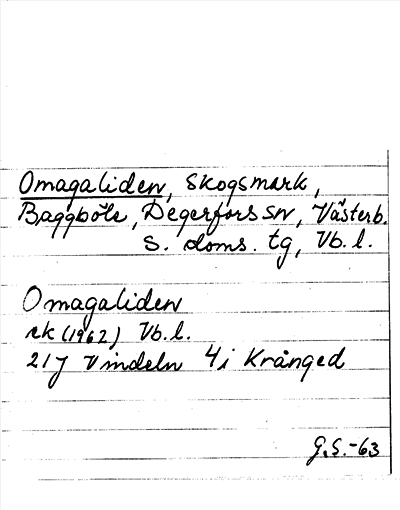 Omagaliden, skogsmark,
Baggböle, Degerfors sn, Västerb.
s. doms. tg, Vb. l.
Omagaliden
rk (1962) Vb. l.
21J Vindeln 4i Krånged
G.S.-63